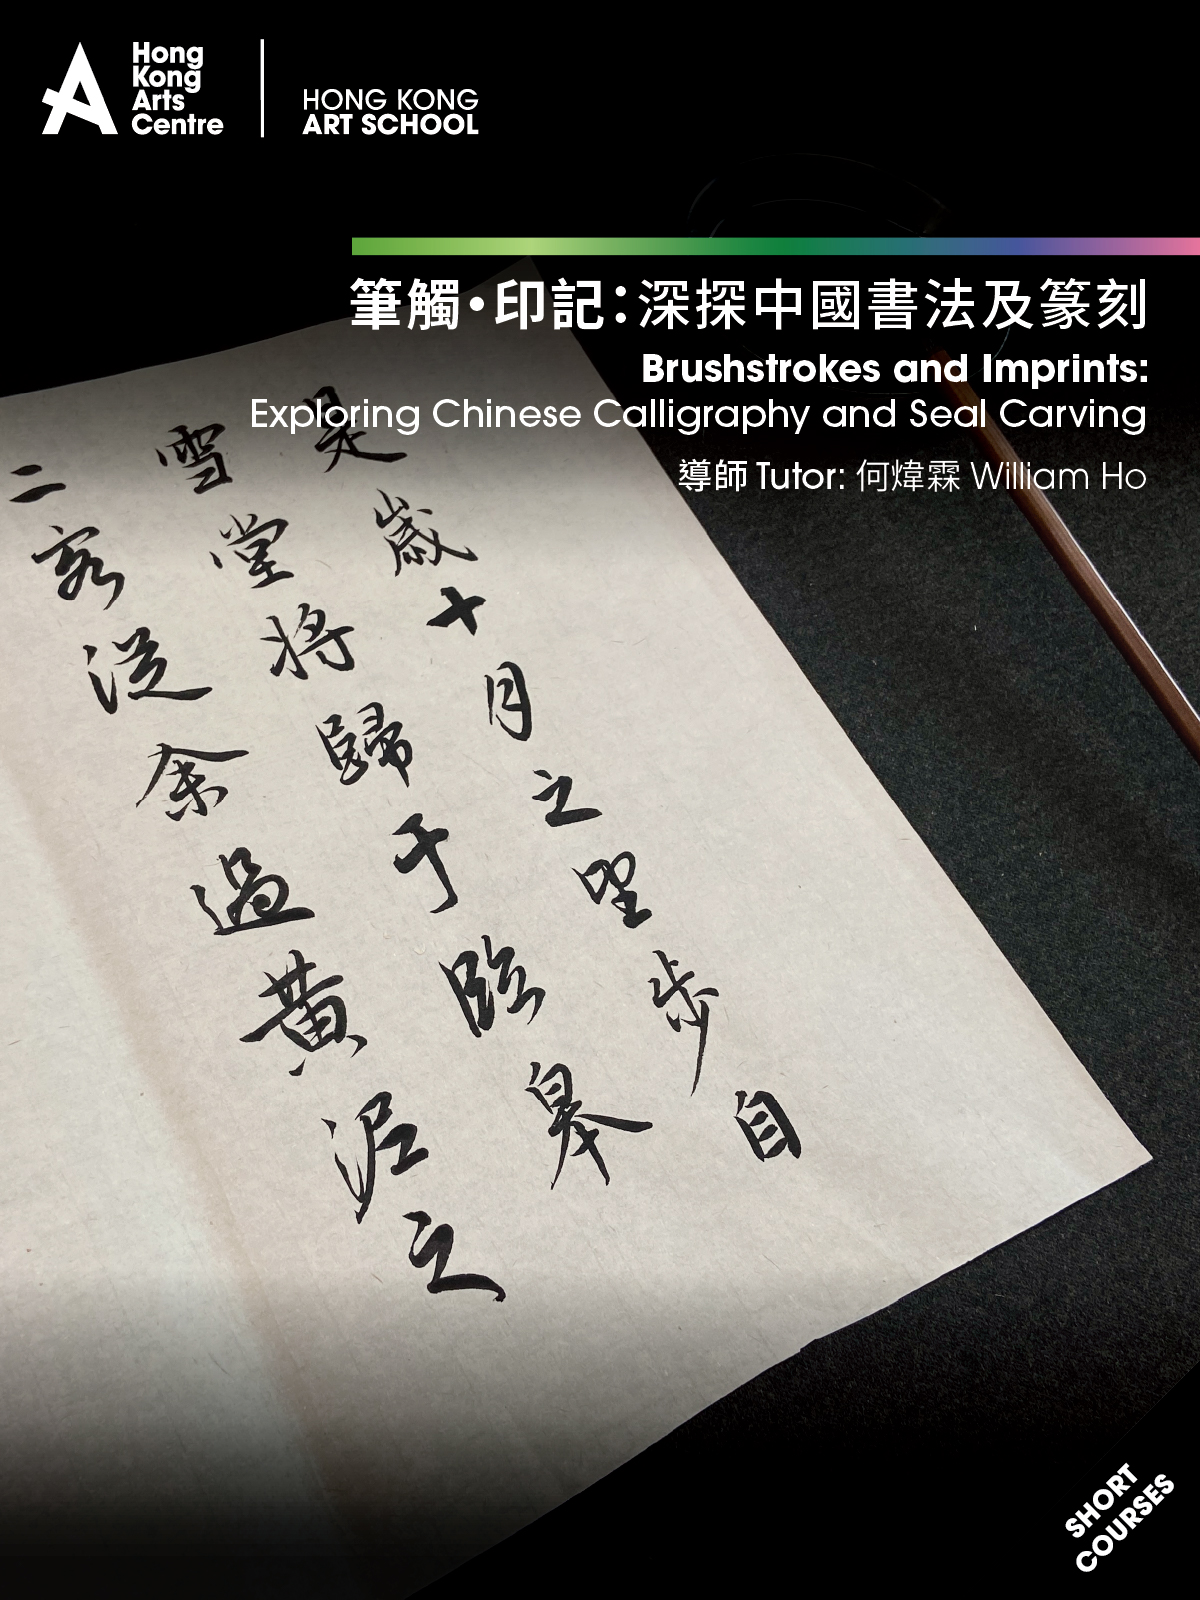 Hong
Kong
Arts
Centre
HONG KONG
ART SCHOOL
筆觸•印記：深探中國書法及篆刻
Brushstrokes and Imprints:
Exploring Chinese Calligraphy and Seal Carving
導師 Tutor: 何煒霖 William Ho
是歲十月之望步自
雪堂將歸于臨皋
二客從余過黃泥之
SHORT
COURSES